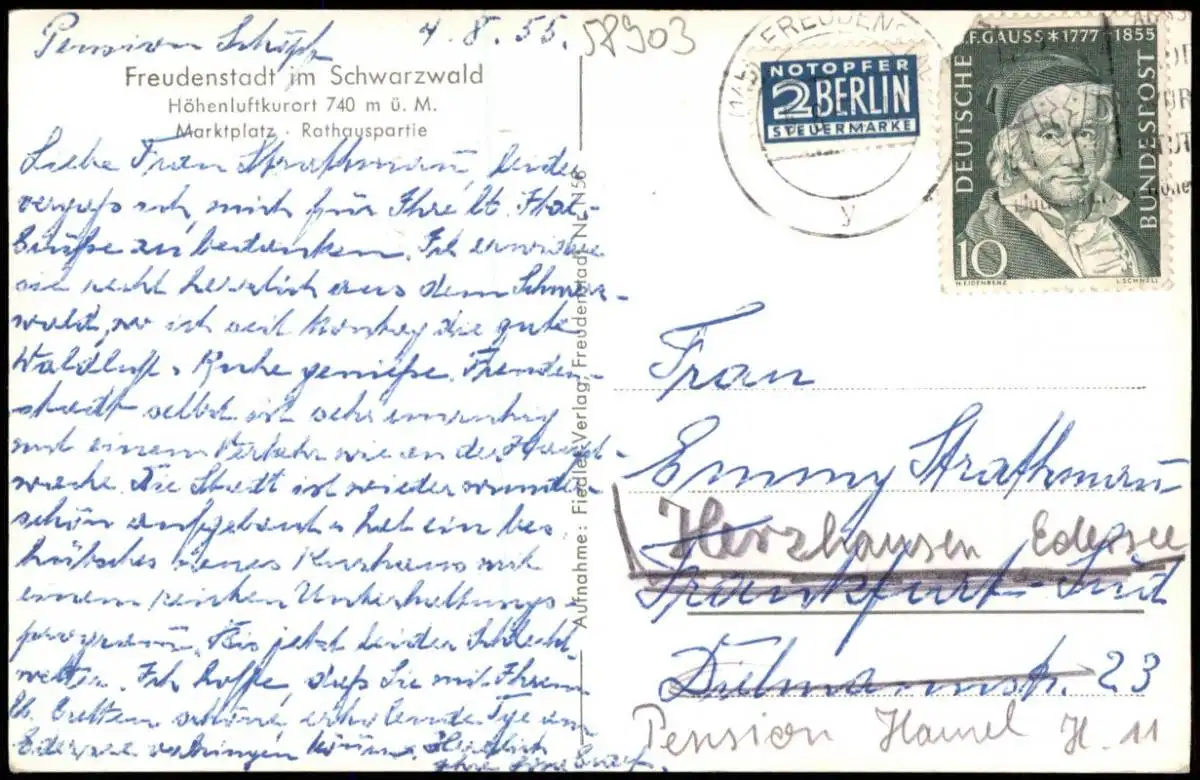 Pension Schöpf 4.8.55.
58903
Freudenstadt im Schwarzwald
Höhenluftkurort 740 m ü. M.
Marktplatz · Rathauspartie
Liebe Frau Strathmann, leider
vergaß ich, mich für Ihre lb.
grüße zu bedanken. Ich erwidre
sie recht herzlich aus dem Schwarz-
wald, wo ich seit Montag die gute
Waldluft u. Ruhe genieße. Freuden-
stadt selbst ist sehr unruhig
mit einem Verkehr wie an der Haupt-
wache. Die Stadt ist wieder wunder-
schön aufgebaut u. hat ein bes.
hübsches neues Kurhaus mit
einem reichen Unterhaltungs-
programm. Bis jetzt leider Schlecht-
wetter. Ich hoffe, daß Sie mit Ihrem
lb. Gatten schöne erholende Tage am
Edersee verbringen können. Herzlich
Ihre
Aufnahme: Fiedler-Verlag, Freudenstadt, Nr. N56
FREUDENS
y
NOTOPFER
2 BERLIN
STEUERMARKE
C.F. GAUSS * 1777-1855
DEUTSCHE
BUNDESPOST
10
H. EIDENBENZ
L. SCHNELL
Frau
Emmy Strathmann
Herzhausen Edersee
Frankfurt-Süd
Dielmannstr. 23
Pension Hamel H. 11